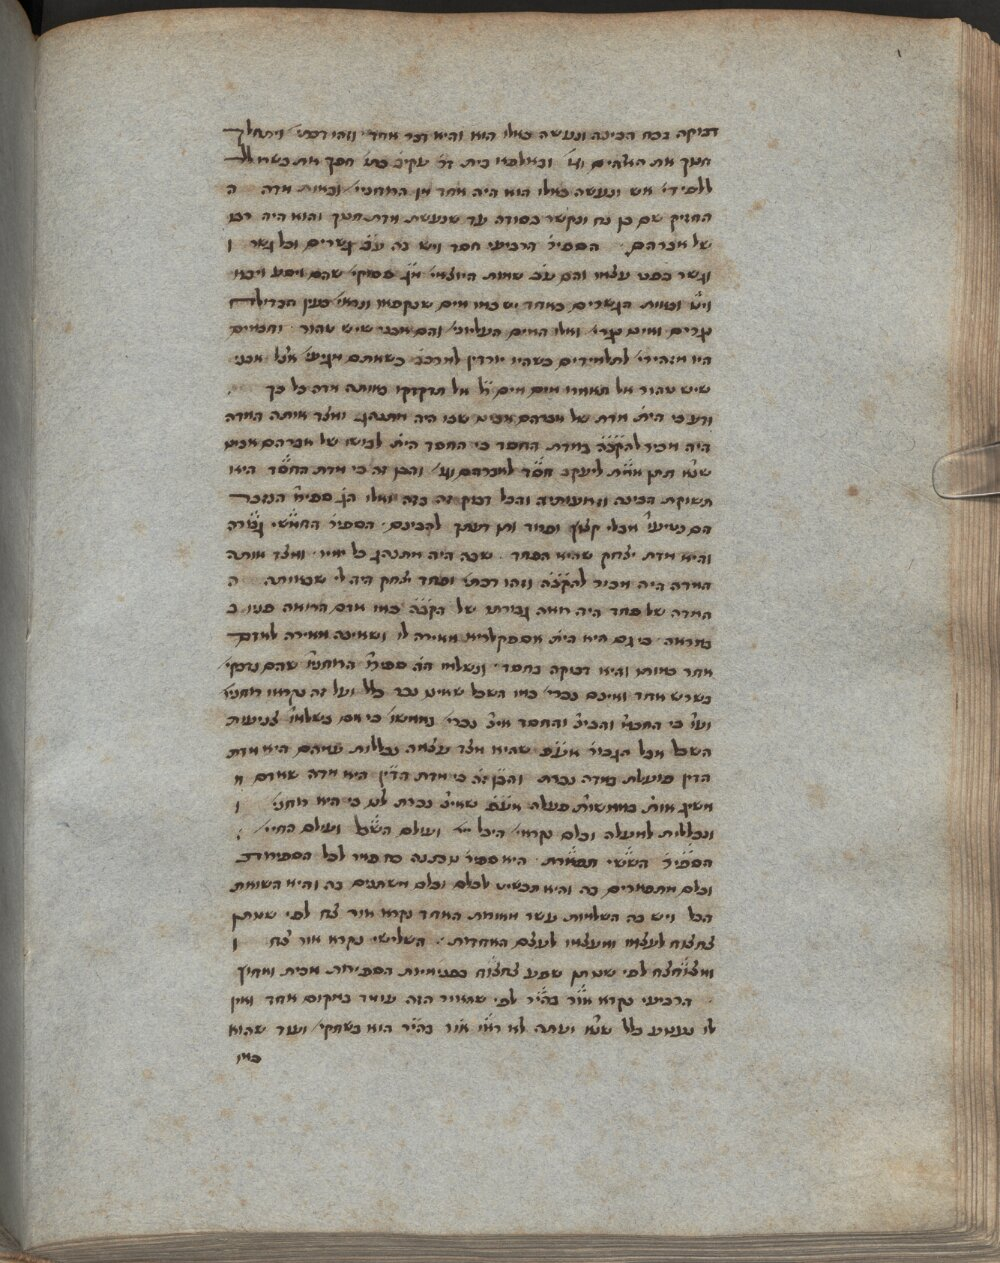 דבוקה בכח הבינה ונעשה כאלו הוא והיא דבר אחד וזהו דכתי׳ ויתהלך
חנוך את האלהים וגו׳ ובאלפא ביתא דר׳ עקיבא כתי׳ חנוך את בשרו לל
ללפידי׳ אש ונעשה כאלו הוא היה אחד מן הרוחניי׳ ובאות מדה ה
החזיק שם בן נח ונקשר בסודה עד שנעשת מדת חנוך והוא היה רבו
של אברהם׃ הספיר׳ הרביעי חסד ויש בה ע״ב גשרים וכל גשר ו
וגשר בפני עצמו והם ע״ב שמות היוצאי׳ מן ג׳ פסוקי׳ שהם ויסע ויבא
ויט ובאות הגשרים באחד יש כמו מים שנקפאו ונראי׳ כעין הבדולח
קרים ואינם קרי׳ ואלו המים העליוני׳ והם אבני שיש טהור וחכמים
היו מזהירי׳ לתלמידים כשהיו יורדין למרכבה כשאתם מגיעי׳ אצל אבני
שיש טהור אל תאמרו מים מים ר״ל אל תדקדקו באותה מדה כל כך
ודע כי היא מדת של אברהם אבינו שבו היה מתנהג ומצד אותה המדה
היה מכיר להקב״ה במדת החסד כי החסד היה לבושו של אברהם אבינו
שנ׳ תתן אמת ליעקב חסד לאברהם וגו׳ והבן זה כי מדת החסד היא
תשוקת הבינה והכל דבוק זה בזה ואלו הן ספירו׳ הנזכרי׳
הם בלי קצוץ ופרוד ותן דעתך להבינם׃ הספיר׳ החמשי גבורה
והיא מדת יצחק שהיא הפחד שבה היה מתנהג כל ימיו ומצד אותה
המדה היה מכיר להקב״ה וזהו דכתי׳ ופחד יצחק היה לי שבאותה ה
המדה של פחד היה רואה גבורתו של הקב״ה כמו אדם הרואה פניו ב
במראה כי גם היא היתה אספקלריא מאירה לו ושאינה מאירה לאדם
אחר כמותו והיא דבוקה בחסד ונשלמו הה׳ ספירו׳ הרוחניו׳ שהם נדבקי׳
בשרש אחד ואינם נכרי׳ כמו השכל שאינו נכר כלל ועל זה נקראו רוחניו׳
ועו׳ כי החכמ׳ והבינ׳ והחסד אינ׳ נכרי׳ במוחש׳ כי אם בשלמו׳ צניעות
השכל אבל הגבור׳ אע״פ שהיא מצד עצמה נכללות עמהם היא מדת
הדין פועלת במדה נכרת והבן זה כי מדת הדין היא מדה שאדם מ
משיג אותה במוחשות פעלה אע״פ שאינ׳ נכרת לנו כי היא רוחני׳ ו
ונכללות למעלה וכלם נקראי׳ היכל יי׳ ועולם השכל ועולם החיי׳ ׃
הספיר׳ הששי תפארת היא ספיר׳ נותנה פאר לכל הספירות
וכלם מתפארים בה והיא תכשיט לכלם וכלם משתנים בה והיא השואת
הכל ויש בה השלמות עשר מאומת האחד נקרא אור צח לפי שנותן
צחצוח לעצמו ומעצמו לעצם האחדות׃ השלישי נקרא אור צח ו
ומצוחצח לפי שנותן שפע צחצוח בפנימיות הספירות מבית ומחוץ
הרביעי נקרא אור בהיר לפי שהאור הזה עומד במקום אחד ואין
לו תנועה כלל שנ׳ ועתה לא ראו אור בהיר הוא בשחקי׳ ועוד שהוא
כמו